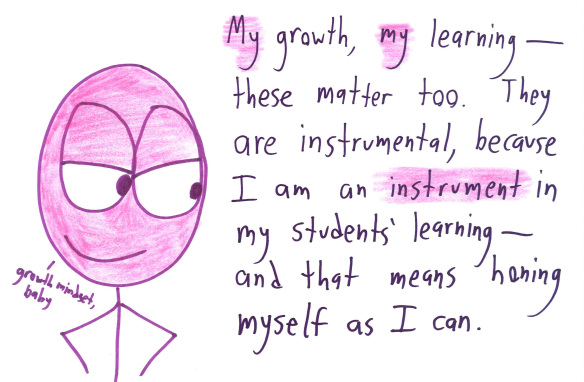 My growth, my learning —
these matter too. They
are instrumental, because
I am an instrument in
my students' learning —
and that means honing
myself as I can.
growth mindset,
baby